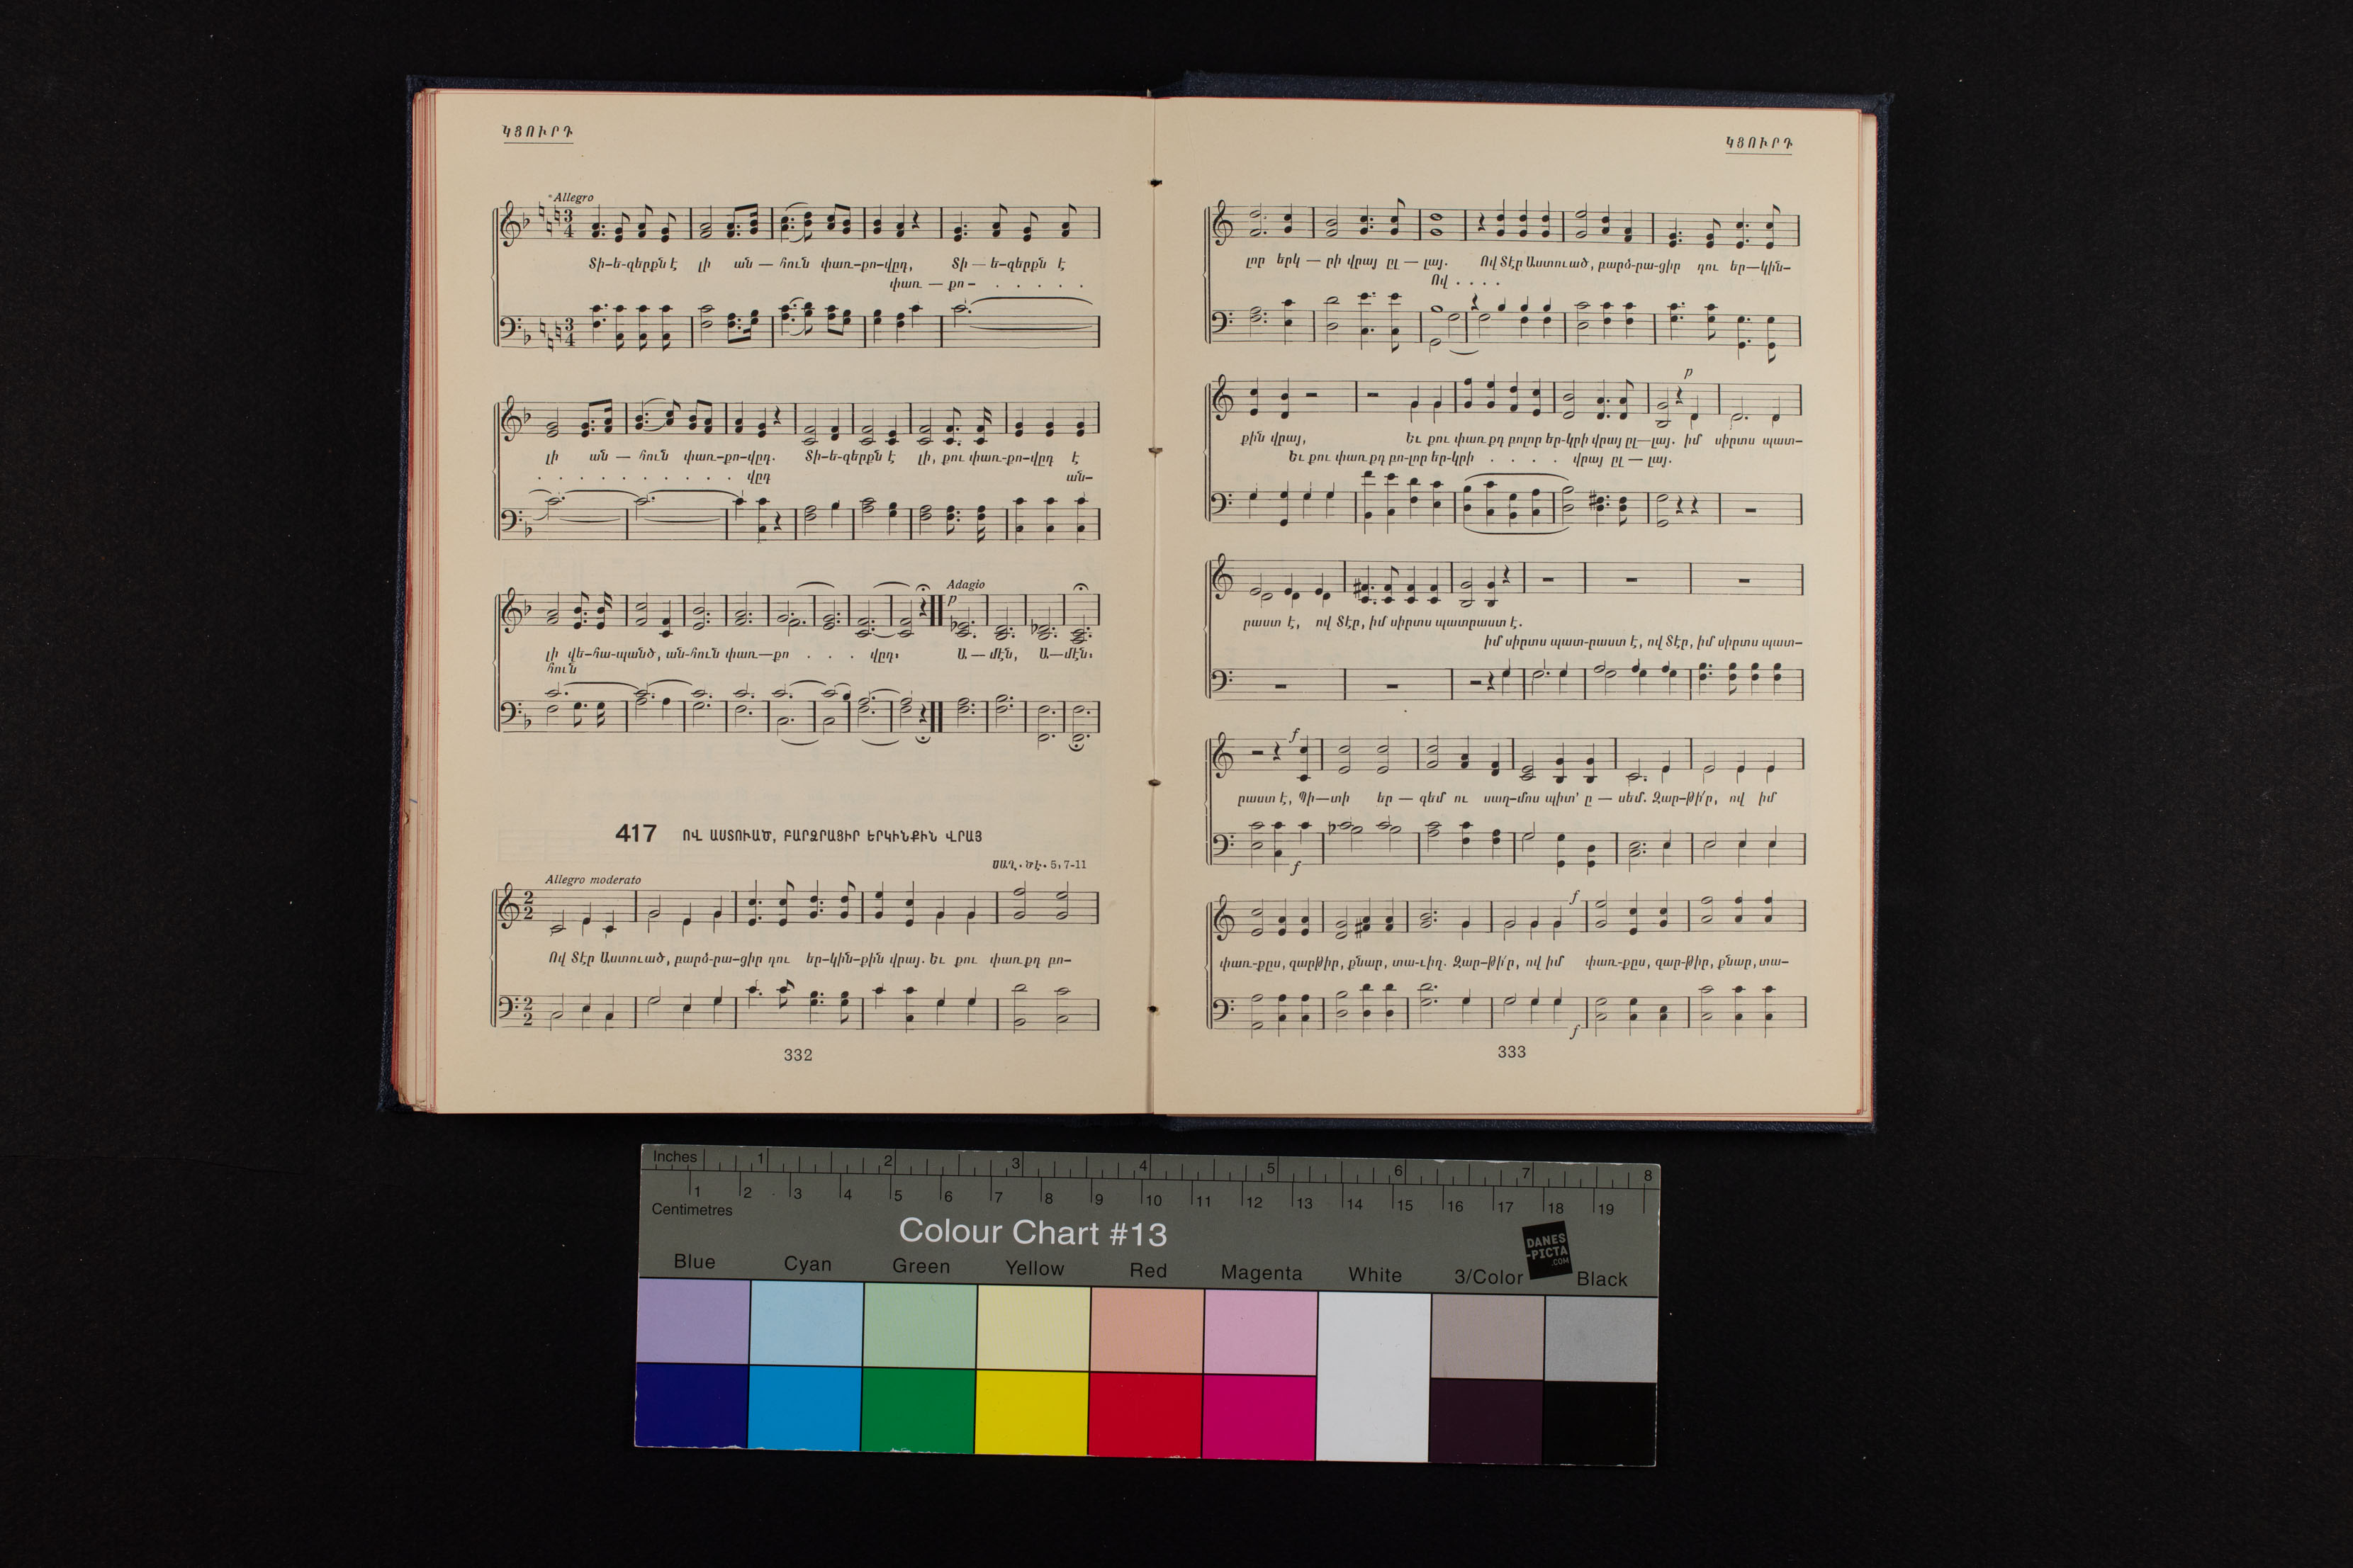 ԿՑՈՒՐԴ
Allegro
Տի–ե-զերքն է լի ան — հուն փառ–քո–վըդ, Տի — ե–զերքն է
փառ — քո– . . . . .
լի ան — հուն փառ–քո–վըդ. Տի–ե-զերքն է լի, քու փառ-քո–վըդ է
. . . . . . . . . . վըդ ան–
Adagio
p
լի վե–հա-պանծ, ան-հուն փառ—քո . . . վըդ։ Ա — մէն, Ա—մէն։
հուն
417 ՈՎ ԱՍՏՈՒԱԾ, ԲԱՐՁՐԱՑԻՐ ԵՐԿԻՆՔԻՆ ՎՐԱՅ
ՍԱՂ. ԾԷ. 5, 7-11
Allegro moderato
Ով Տէր Աստուած, բարձ-րա–ցիր դու եր–կին–քին վրայ. Եւ քու փառքդ բո–
332
ԿՑՈՒՐԴ
լոր երկ — րի վրայ ըլ — լայ. Ով Տէր Աստուած, բարձ-րա-ցիր դու եր—կին–
Ով . . . .
p
քին վրայ, Եւ քու փառքդ բոլոր եր-կրի վրայ ըլ—լայ. իմ սիրտս պատ–
Եւ քու փառքդ բո-լոր եր-կրի . . . . վրայ ըլ — լայ.
րաստ է, ով Տէր, իմ սիրտս պատրաստ է.
իմ սիրտս պատ-րաստ է, ով Տէր, իմ սիրտս պատ–
f
րաստ է, Պի—տի եր — գեմ ու սաղ–մոս պիտ՚ ը — սեմ. Զար–թի՛ր, ով իմ
f
f
փառ-քըս, զարթիր, քնար, տա-ւիղ. Զար–թի՛ր, ով իմ փառ-քըս, զար-թիր, քնար, տա–
f
333
Inches 1 2 3 4 5 6 7 8
1 2 3 4 5 6 7 8 9 10 11 12 13 14 15 16 17 18 19
Centimetres
Colour Chart #13
DANES
-PICTA
.COM
Blue Cyan Green Yellow Red Magenta White 3/Color Black